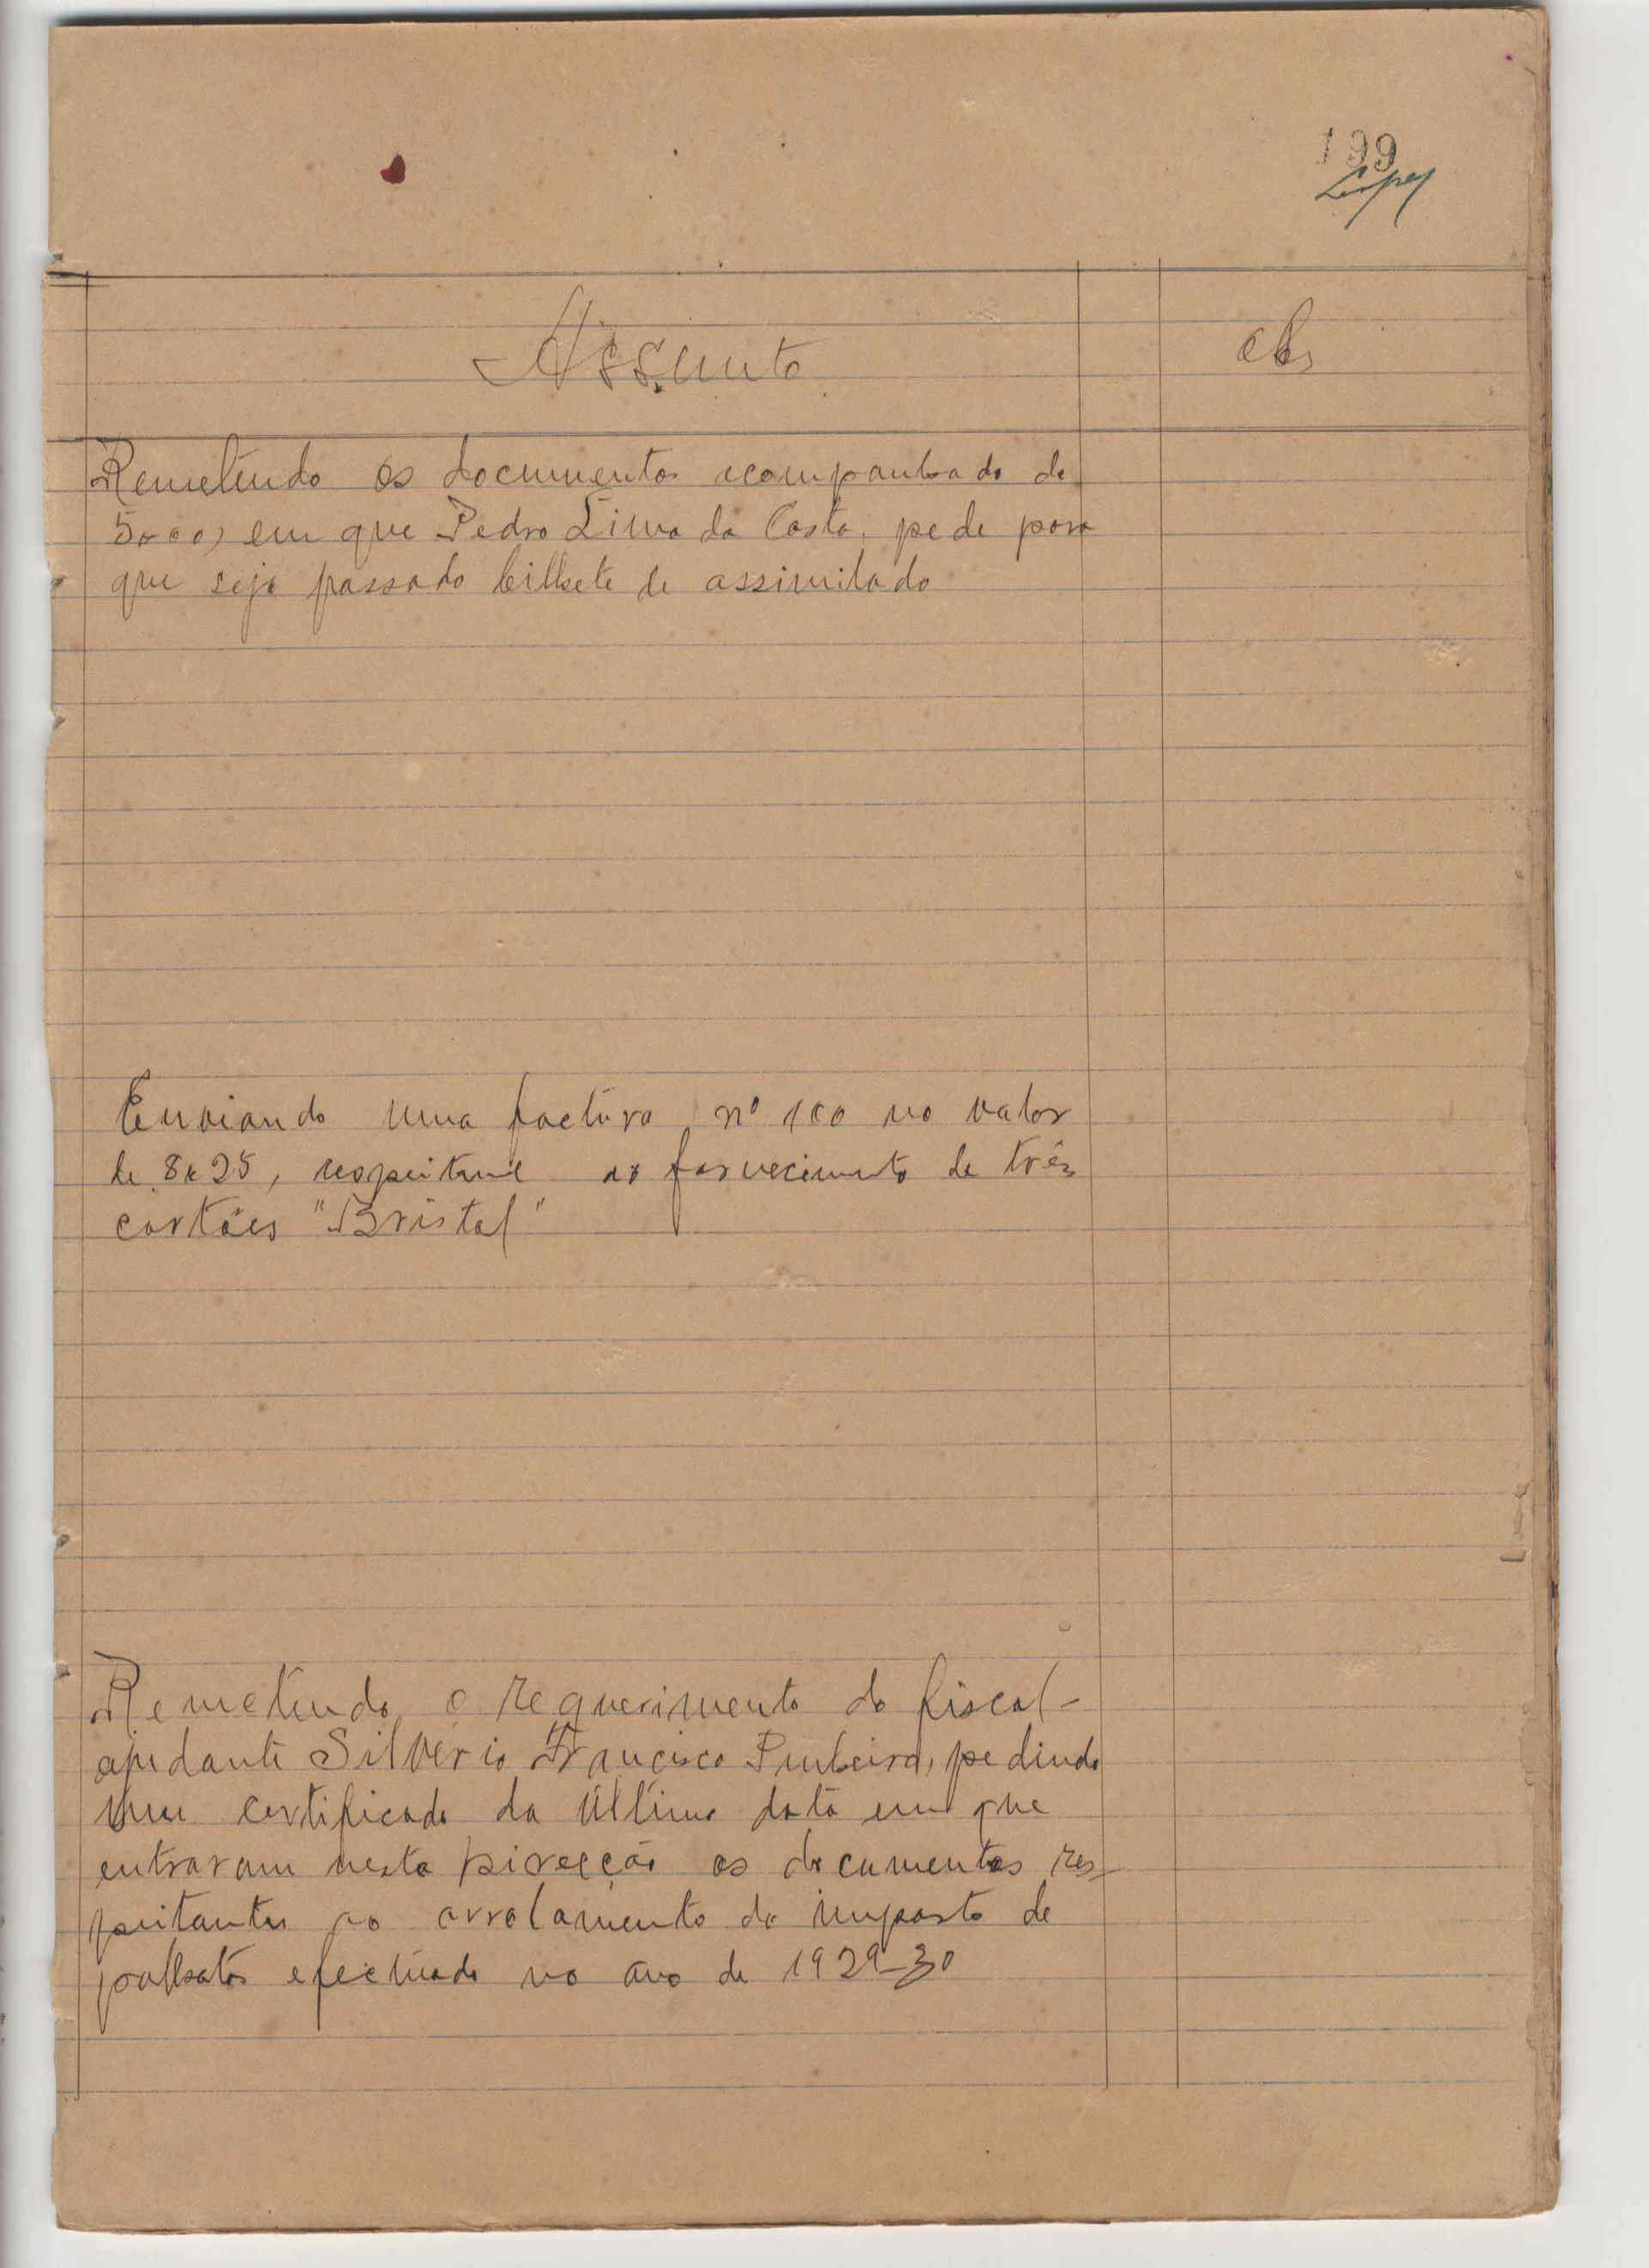 199
Lopes
Assunto
obs
Remetendo os documentos acompanhado de
5x00, em que Pedro Lima da Costa, pede para
que seja passado bilhete de assimilado
Enviando uma factura nº 100 no valor
de 8x25, respeitante ao fornecimento de três
cartões "Bristol"
Remetendo o requerimento do fiscal-
ajudante Silvério Francisco Pinheiro, pedindo
um certificado da última data em que
entraram nesta Direcção os documentos res-
peitantes ao arrolamento do imposto de
palhotas efectuado no ano de 1929-30